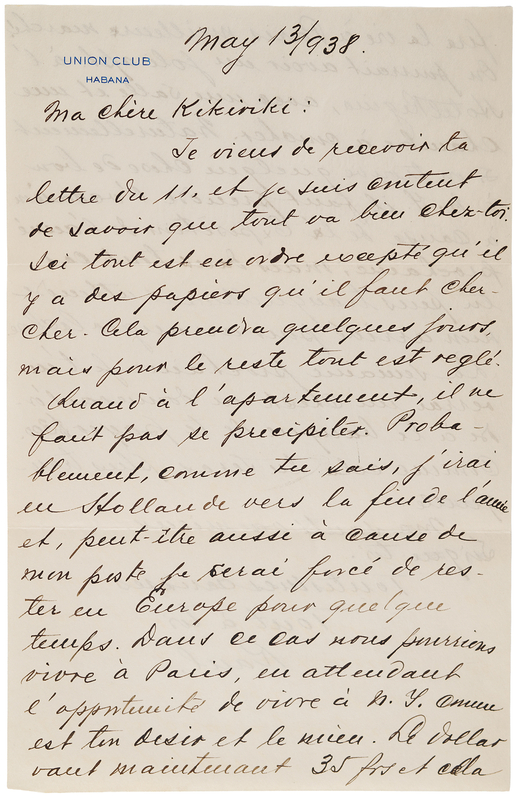 May 13/938.
UNION CLUB
HABANA
Ma chère Kikiriki:
Je viens de recevoir ta
lettre du 11, et je suis content
de savoir que tout va bien chez-toi.
Ici tout est en ordre excepté qu'il
y a des papiers qu'il faut cher-
cher. Cela prendra quelques jours,
mais pour le reste tout est reglé.
Quand à l'apartement, il ne
faut pas se precipiter. Proba-
blement, comme tu sais, j'irai
en Hollande vers la fin de l'année
et, peut-être aussi à cause de
mon poste je serai forcé de res-
ter en Europe pour quelque
temps. Dans ce cas nous pourrions
vivre à Paris, en attendant
l'opportunité de vivre à N.Y. comme
est ton desir et le mien. Le dollar
vaut maintenant 35 frs et cela